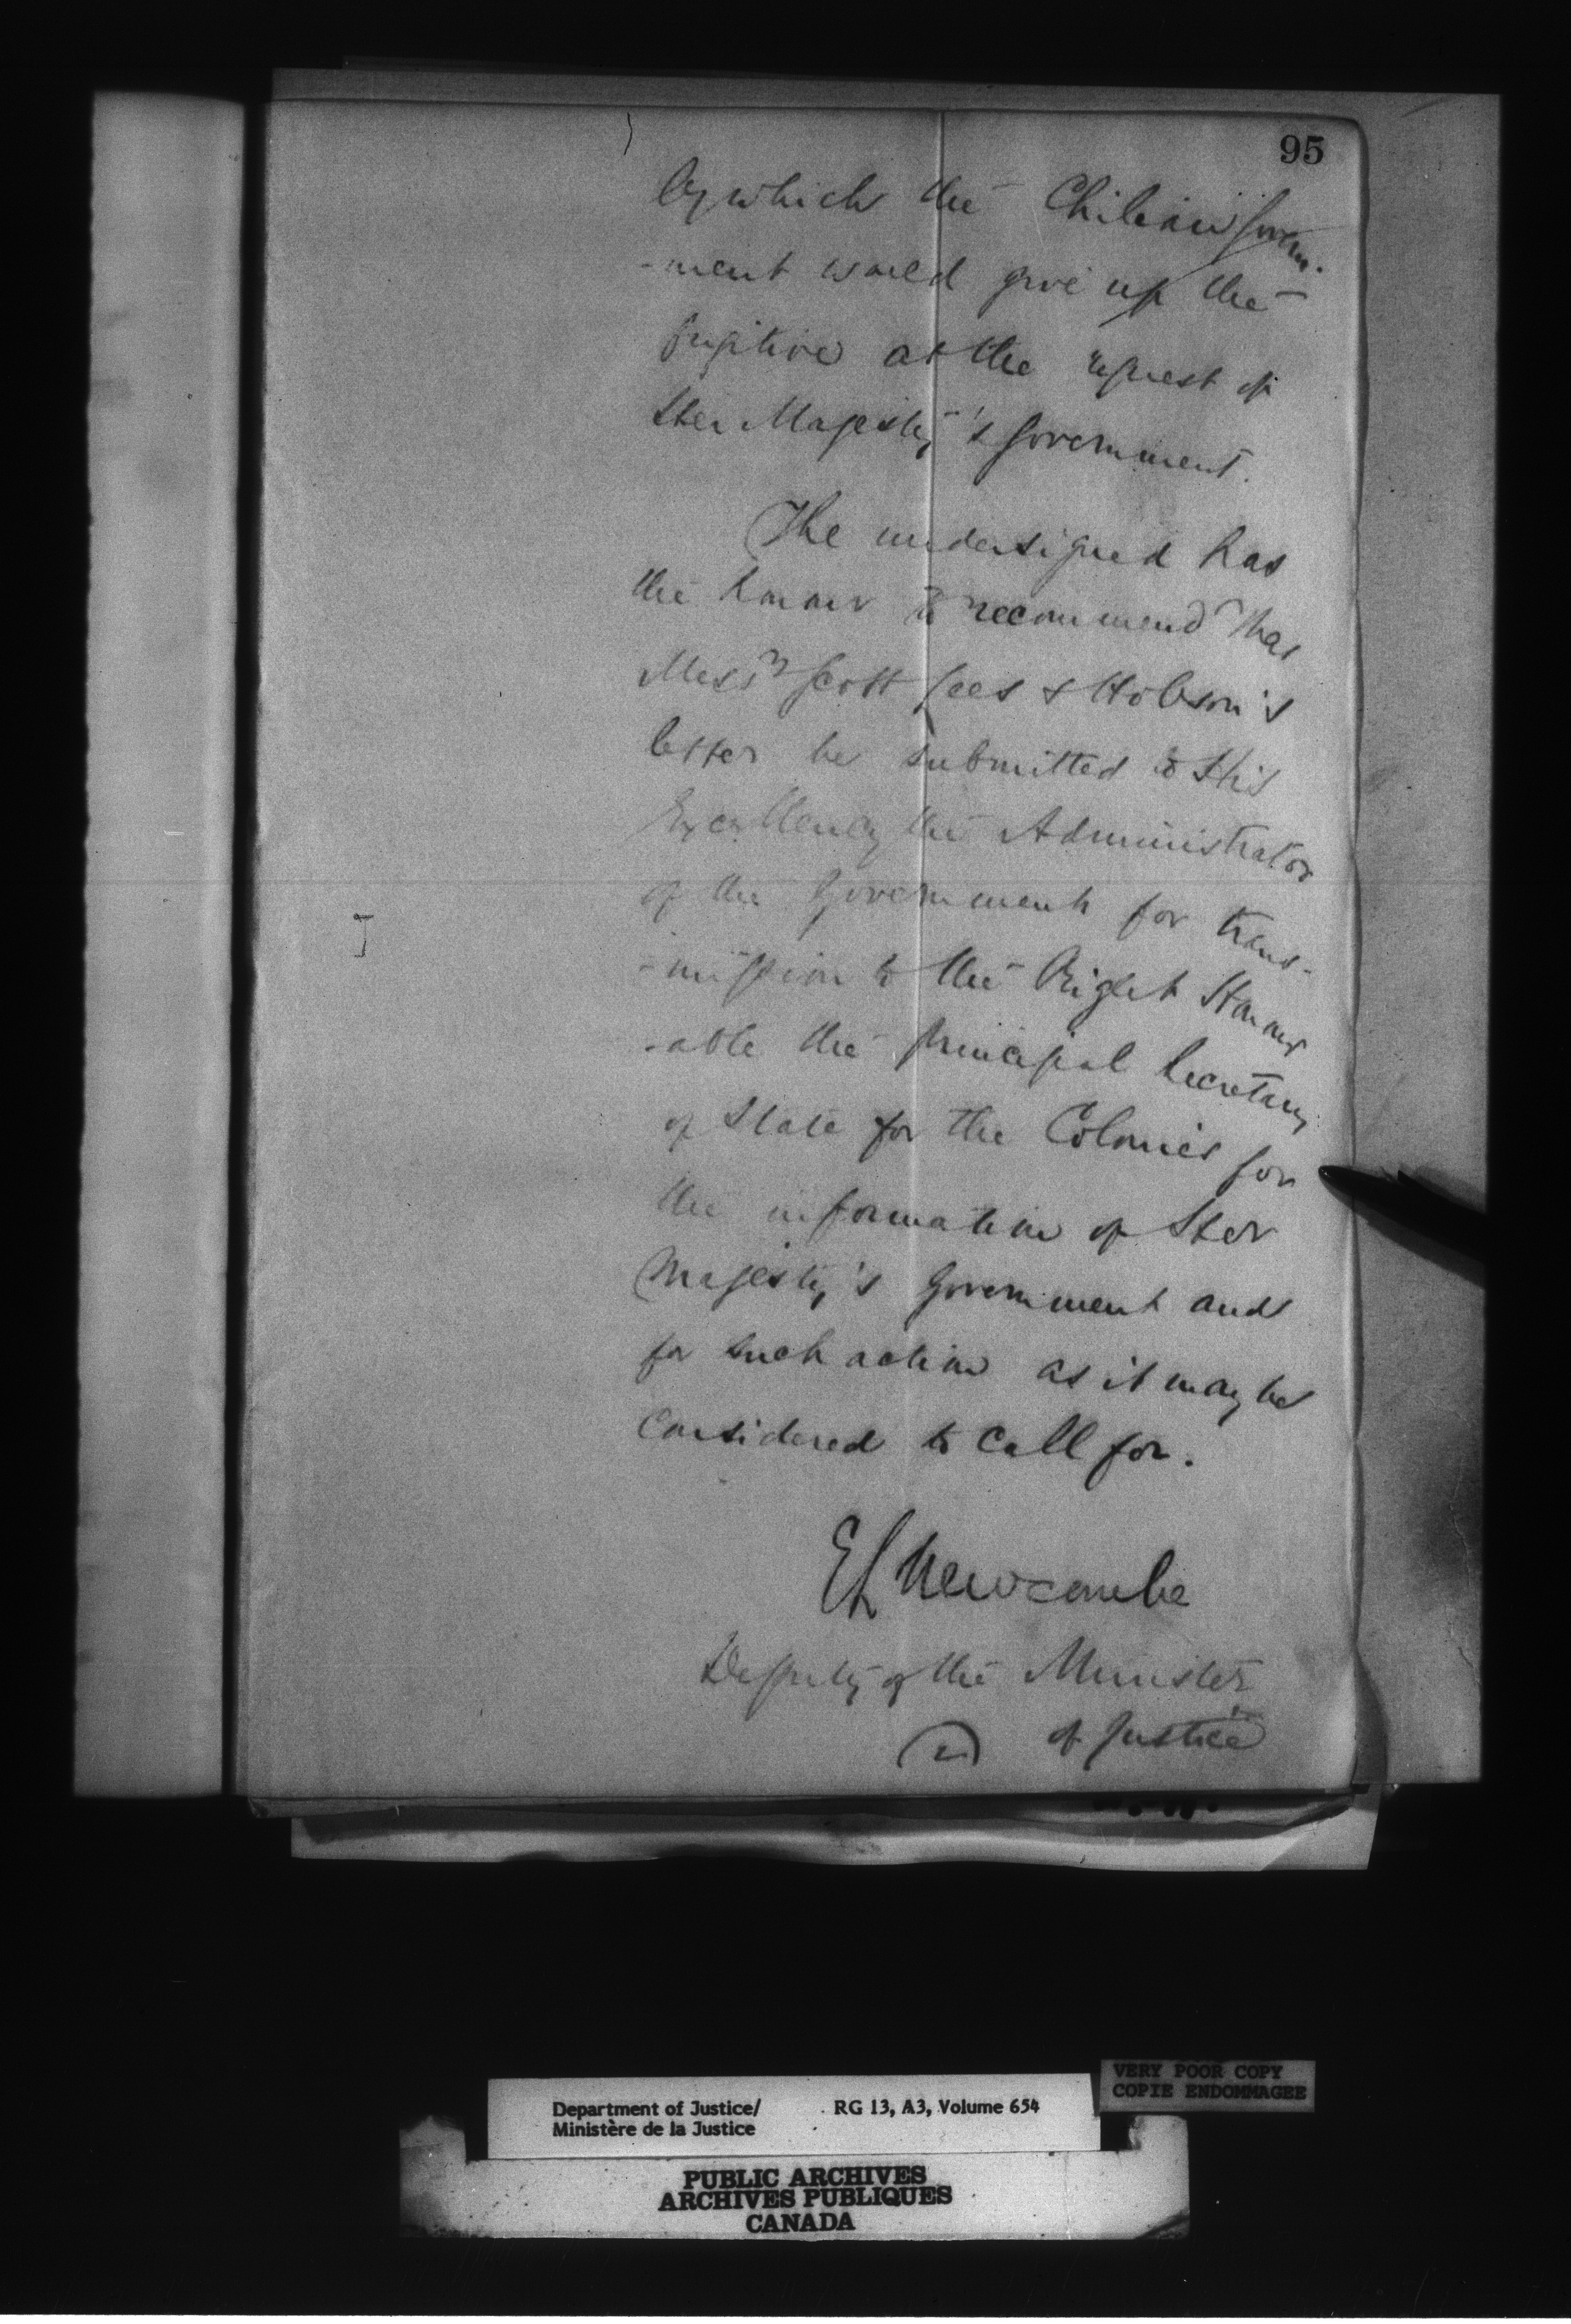 95
by which the Chilian Govern-
-ment would give up the
fugitive at the request of
Her Majesty's Government.
The undersigned has
the honour to recommend that
Messrs Scott Lees & Hobson's
letter be submitted to His
Excellency the Administrator
of the Government for trans-
-mission to the Right Honour
-able the Principal Secretary
of State for the Colonies for
the information of Her
Majesty's Government and
for such action as it may be
considered to call for.
E L Newcombe
Deputy of the Minister
of Justice
VERY POOR COPY
COPIE ENDOMMAGEE
Department of Justice/ RG 13, A3, Volume 654
Ministère de la Justice
PUBLIC ARCHIVES
ARCHIVES PUBLIQUES
CANADA